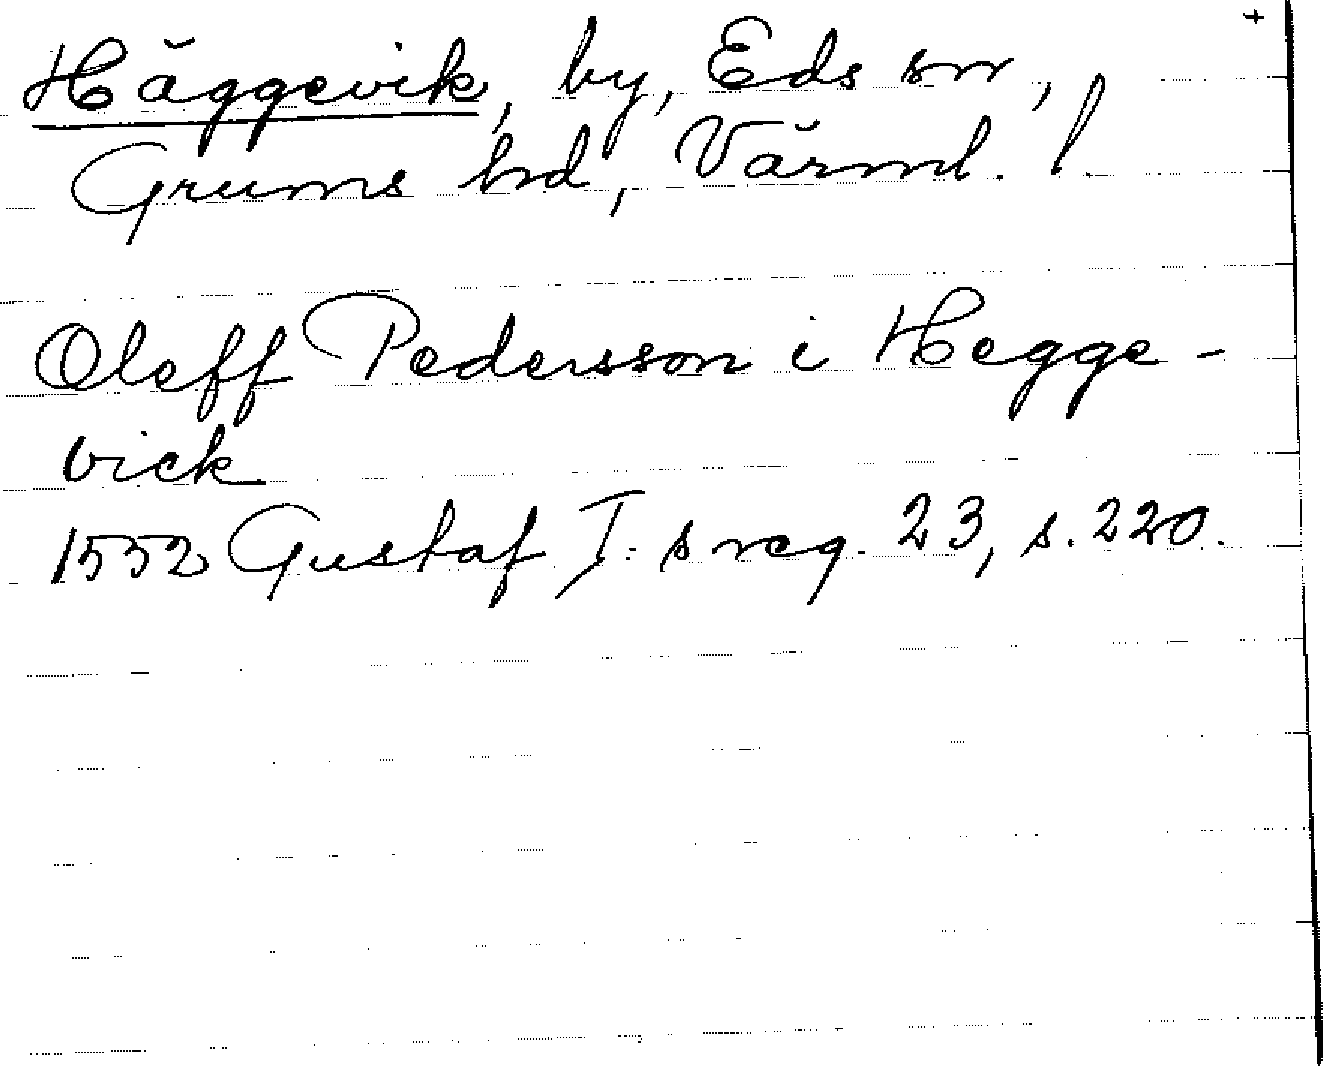 +
Häggevik, by, Eds sn,
Grums hd, Värml. l.
Oleff Pedersson i Hegge-
vick
1552 Gustaf I:s reg. 23, s. 220.